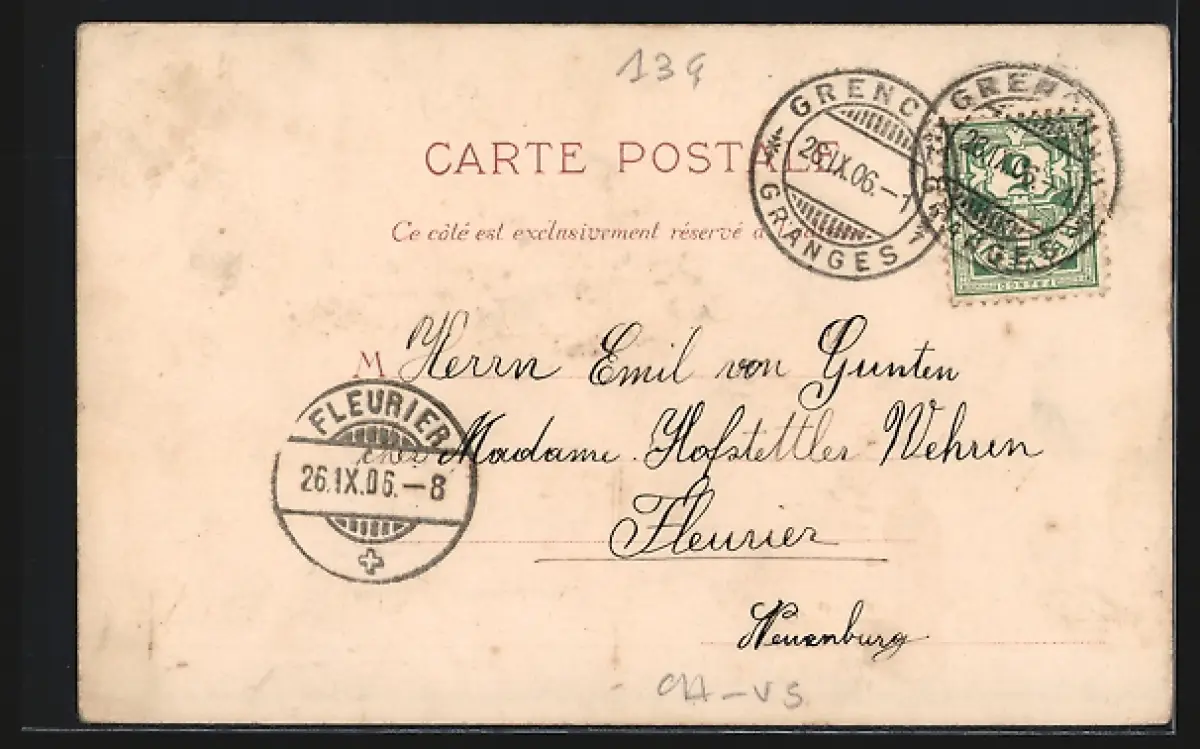 139
CARTE POSTALE
Ce côté est exclusivement réservé à
GRENC
26.IX.06.–1
GRANGES
GREN
26.IX.06.–
GRANGES
M Herrn Emil von Gunten
chez Madame Hofstettler Wehren
Fleurier
Neuenburg
FLEURIER
26.IX.06.–8
CH–VS